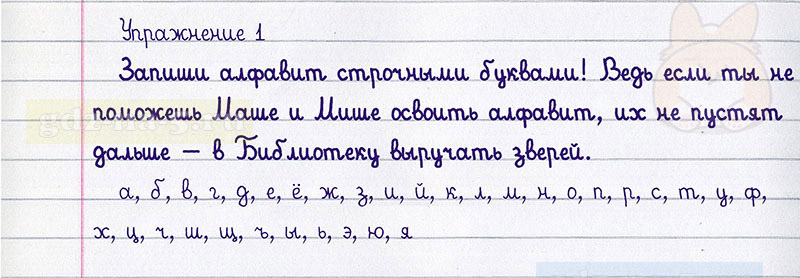 Упражнение 1
Запиши алфавит строчными буквами! Ведь если ты не
поможешь Маше и Мише освоить алфавит, их не пустят
дальше – в Библиотеку выручать зверей.
а, б, в, г, д, е, ё, ж, з, и, й, к, л, м, н, о, п, р, с, т, у, ф,
х, ц, ч, ш, щ, ъ, ы, ь, э, ю, я